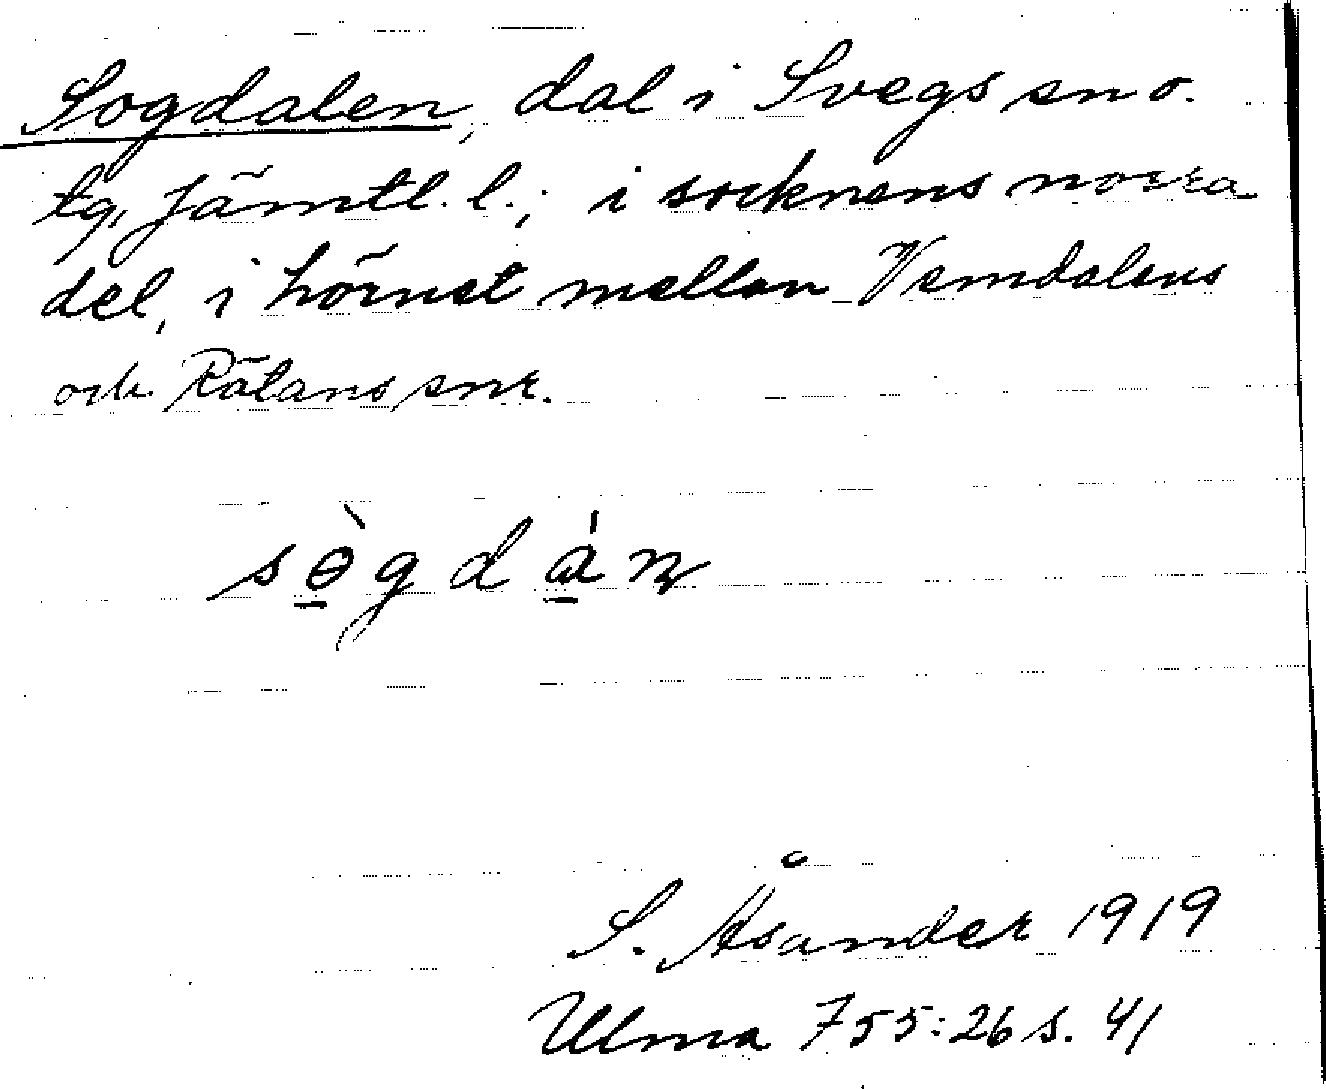 Sogdalen, dal i Svegs sn o.
tg, Jämtl. l.; i socknens norra
del, i hörnet mellan Vemdalens
och Rätans snr.
sɵ̀gdán
S. Åsander 1919
Ulma 755:26 s. 41